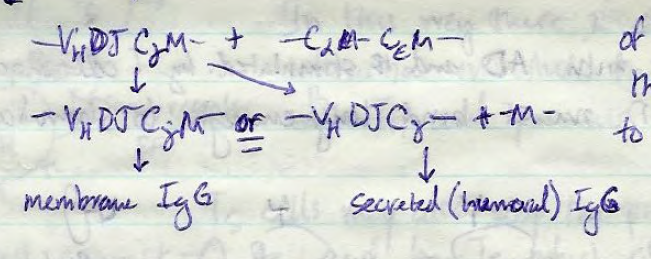 -VHDJCγM- + -CαM-CεM- of
↓ ↘
-VHDJCγM- or -VHDJCγ- + -M- to
↓ ↓
membrane IgG secreted (humoral) IgG